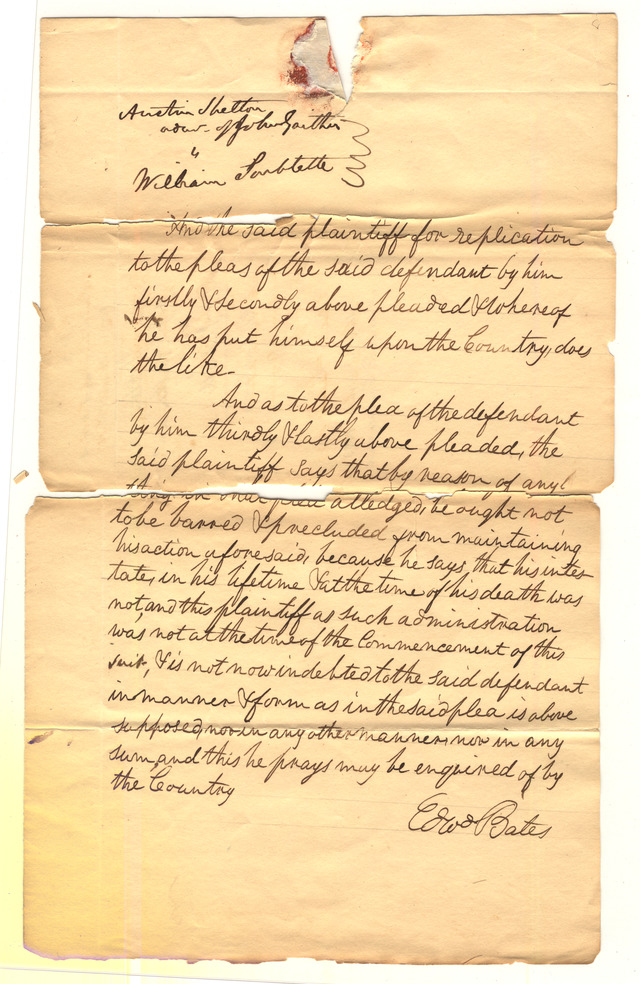 Austin Shelton
admr. of John Gaither
"
William Soublette
And the said plaintiff for replication
to the pleas of the said defendant by him
firstly & secondly above pleaded & whereof
he has put himself upon the Country, does
the like.
And as to the plea of the defendant
by him thirdly & lastly above pleaded, the
said plaintiff says that by reason of any
thing in that plea alledged, he ought not
to be barred & precluded from maintaining
his action aforesaid, because he says, that his intes
tate, in his lifetime & at the time of his death was
not, and this plaintiff as such administration
was not at the time of the Commencement of this
suit, & is not now indebted to the said defendant
in manner & form as in the said plea is above
supposed, nor in any other manner, nor in any
sum, and this he prays may be enquired of by
the Country
Edwd Bates